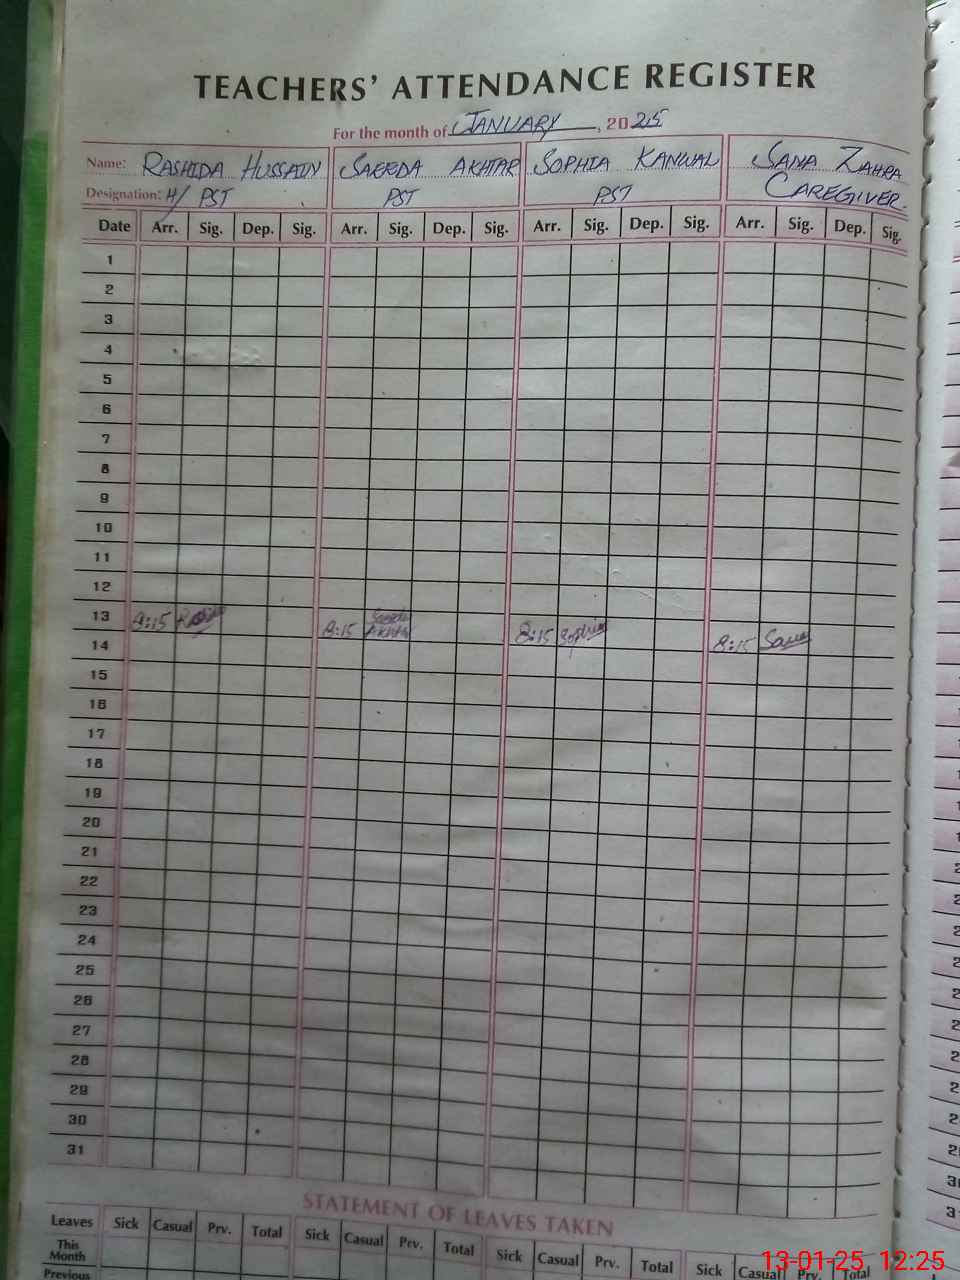 TEACHERS' ATTENDANCE REGISTER
For the month of JANUARY, 2025
Name: RASHIDA HUSSAIN SAEEDA AKHTAR SOPHIA KANWAL SANA ZAHRA
Designation: H/ PST PST PST CAREGIVER.
Date Arr. Sig. Dep. Sig. Arr. Sig. Dep. Sig. Arr. Sig. Dep. Sig. Arr. Sig. Dep. Sig.
1
2
3
4
5
6
7
8
9
10
11
12
13 8:15 8:15 Saeeda Akhtar 8:15 Sophia 8:15 Sana
14
15
16
17
18
19
20
21
22
23
24
25
26
27
28
29
30
31
STATEMENT OF LEAVES TAKEN
Leaves Sick Casual Prv. Total Sick Casual Prv. Total Sick Casual Prv. Total Sick Casual Prv. Total
This Month
Previous
13-01-25 12:25